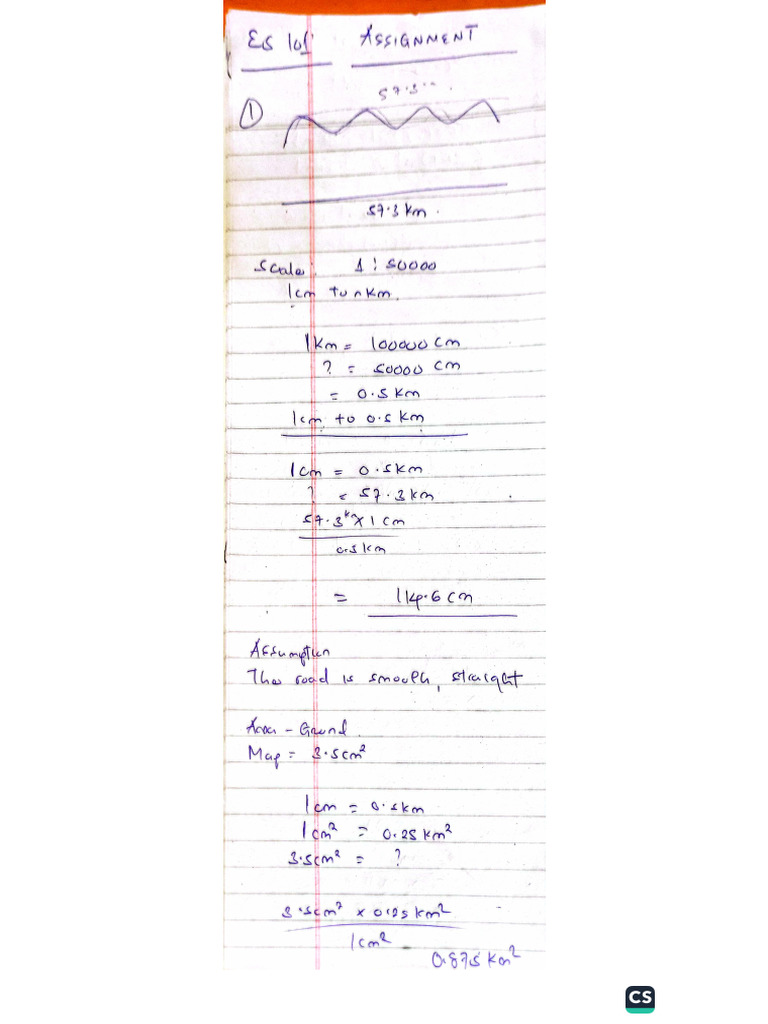 ES 101 ASSIGNMENT
57.3
①
57.3 Km.
Scale: 1:50000
1cm to n Km.
1 Km = 100000 cm
? = 50000 cm
= 0.5 Km
1cm to 0.5 Km
1cm = 0.5km
? = 57.3 km
57.3km x 1 cm
0.5 km
= 114.6 cm
Assumption
The road is smooth, straight
Area - Ground.
Map = 3.5cm²
1 cm = 0.5km
1 cm² = 0.25 km²
3.5cm² = ?
3.5cm² x 0.25 km²
1cm²
0.875 Km²
CS